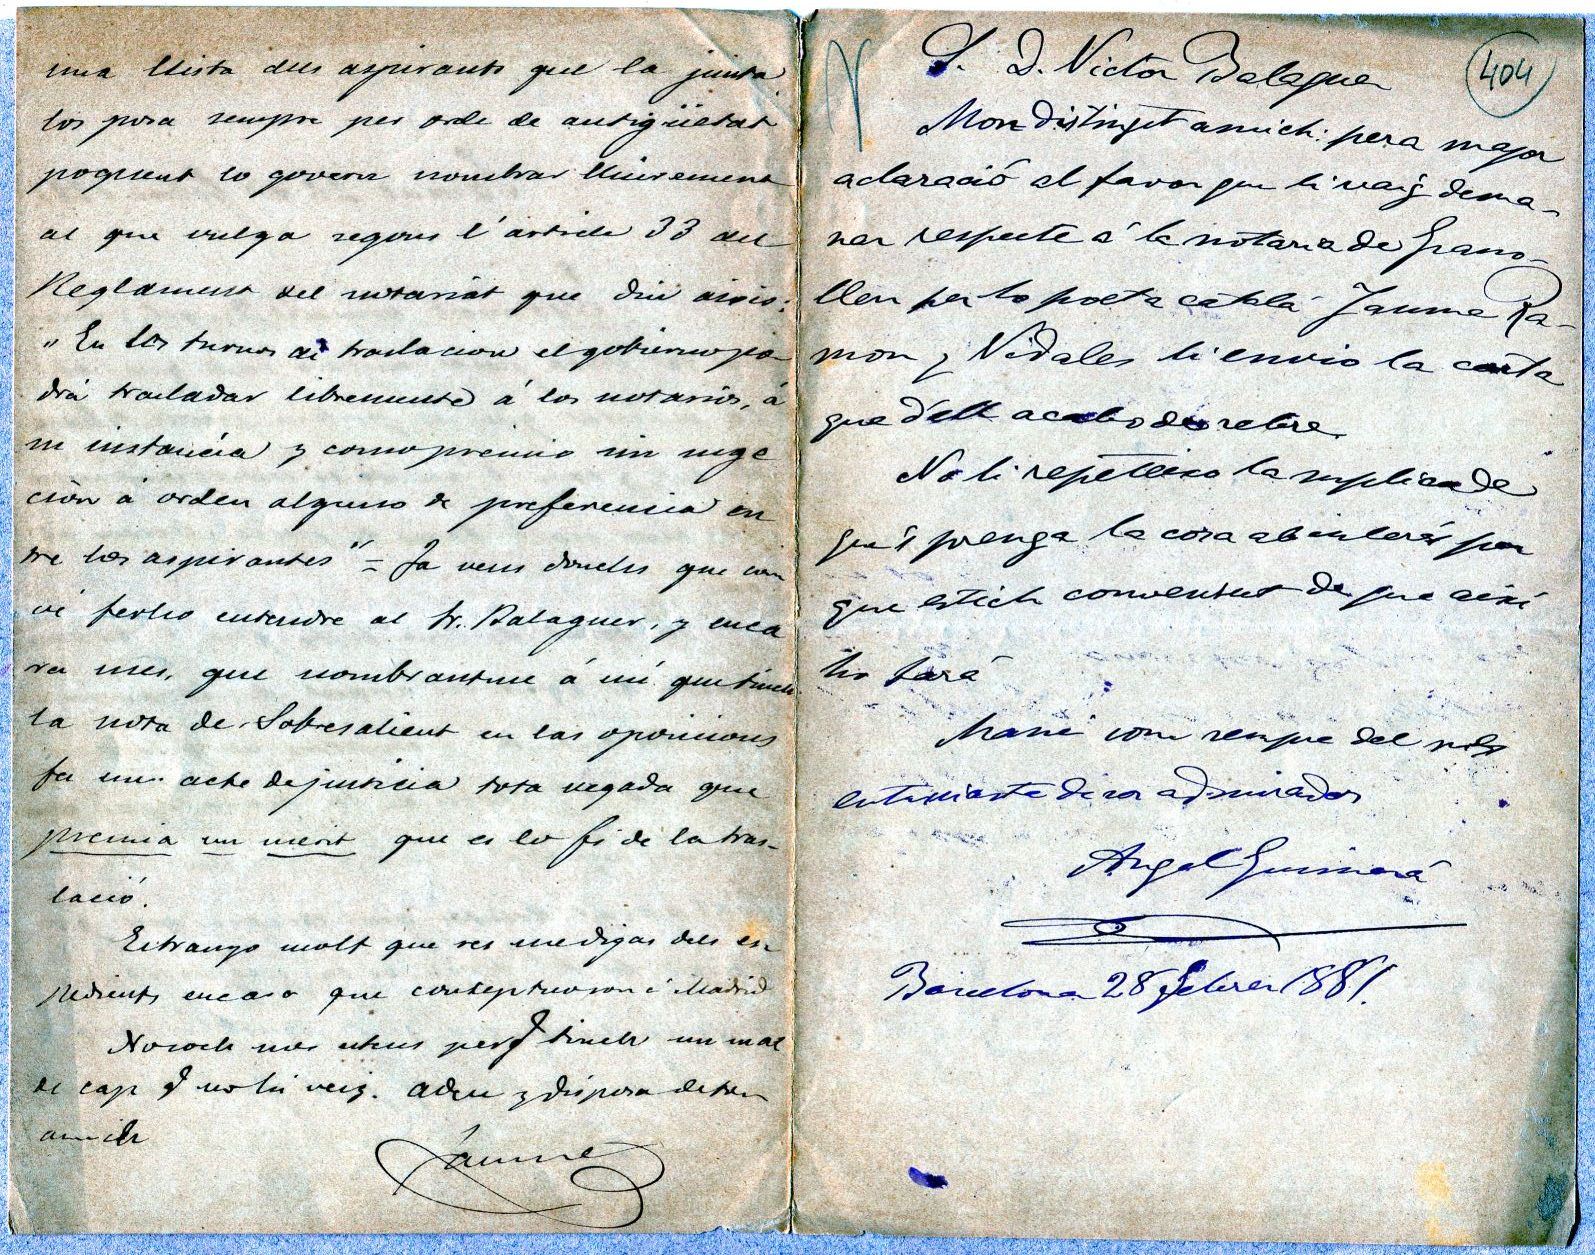 una llista dels aspirants que la junta
los posa sempre per orde de antigüetat
poguent lo govern nombrar lliurement
al que vulga segons l'article 33 del
Reglament del notariat que diu aixis:
"En los turnos de traslacion el gobierno po-
drá trasladar libremente á los notarios, á
su instancia y como premio sin suge
cion á orden alguno de preferencia en
tre los aspirantes" = Ja veus donchs que con
vé ferho entendre al Sr. Balaguer, y enca
ra mes, que nombrantme á mí que tinch
la nota de Sobresalient en las oposicions
fa un acte de justicia tota vegada que
premia un mérit que es lo fi de la tras-
lació.
Estranyo molt que res me digas dels es-
pedients encara que conceptuo son á Madrid
No soch mes estens perq tinch un mal
de cap q no hi veig. Adeu y disposa de ton
amich
Jaume
404
S. D. Victor Balaguer
Mon distingit amich: pera major
aclaració al favor que li vaig dema-
nar respecte á la notaria de Grano-
llers per lo poeta catalá Jaume Ra-
mon y Vidales li envio la carta
que d'ell acabo de rebre.
No li repeteixo la suplica de
que's prenga la cosa ab interés per
que estich convensut de que aixi
ho fará
Mani com sempre del més
entussiasta de sos admiradors
Angel Guimerá
Barcelona 28 Febrer 1881.